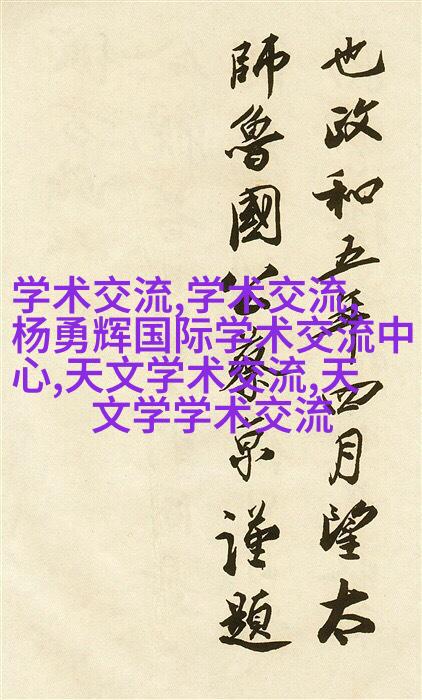 也政和五年四月望太
師魯國公蔡京謹題
学术交流,学术交流,
杨勇辉国际学术交流中
心,天文学术交流,天
文学学术交流